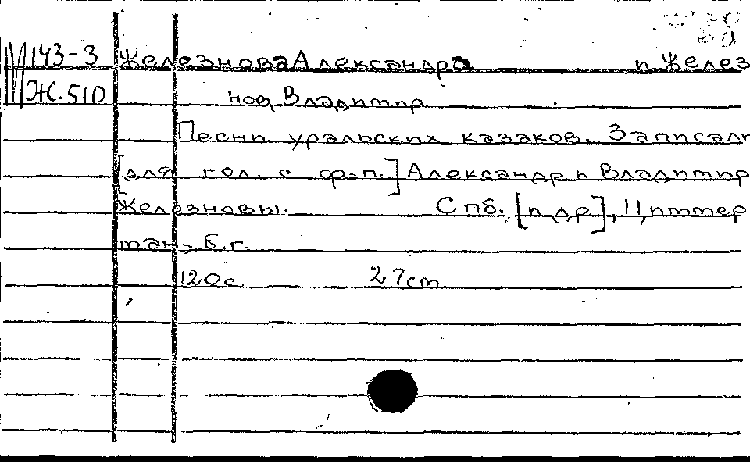 М 143-3 Железнова Александра и Желез
Ж.510 нов, Владимир
Песни уральских казаков. Записали
[для гол. с ф.п.] Александр и Владимир
Железновы. Спб. [и др], Циммер
ман, Б.г.
120с 27cm